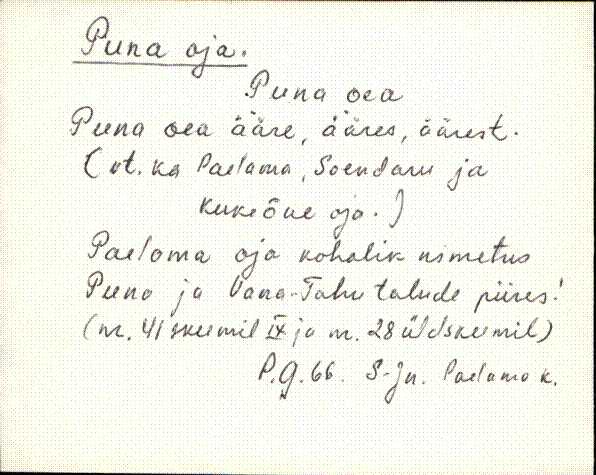 Puna oja.
Puna oea
Puna oea ääre, ääres, äärest.
(vt. ka Paelama, Soendaru ja
kukeõue oja.)
Paelama oja kohalik nimetus
Puna ja Vana-Tahu talude piires!
(nr. 41 skeemil IX ja nr. 28 üldskeemil)
P.g.66. S-Jn. Paelama k.